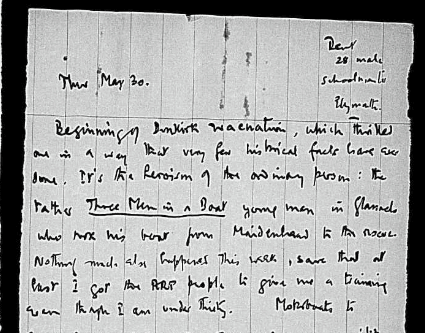 Dent
28 male
schoolmaster
Plymouth.
Thur May 30.
Beginning of Dunkirk evacuation, which thrilled
one in a way that very few historical facts have ever
done. It's the heroism of the ordinary person: the
rather Three Men in a Boat young man in flannels
who took his boat from Maidenhead to the rescue.
Nothing much else happened this week, save that at
last I got the ARP people to give me a training
even though I am under thirty. Motorboats to